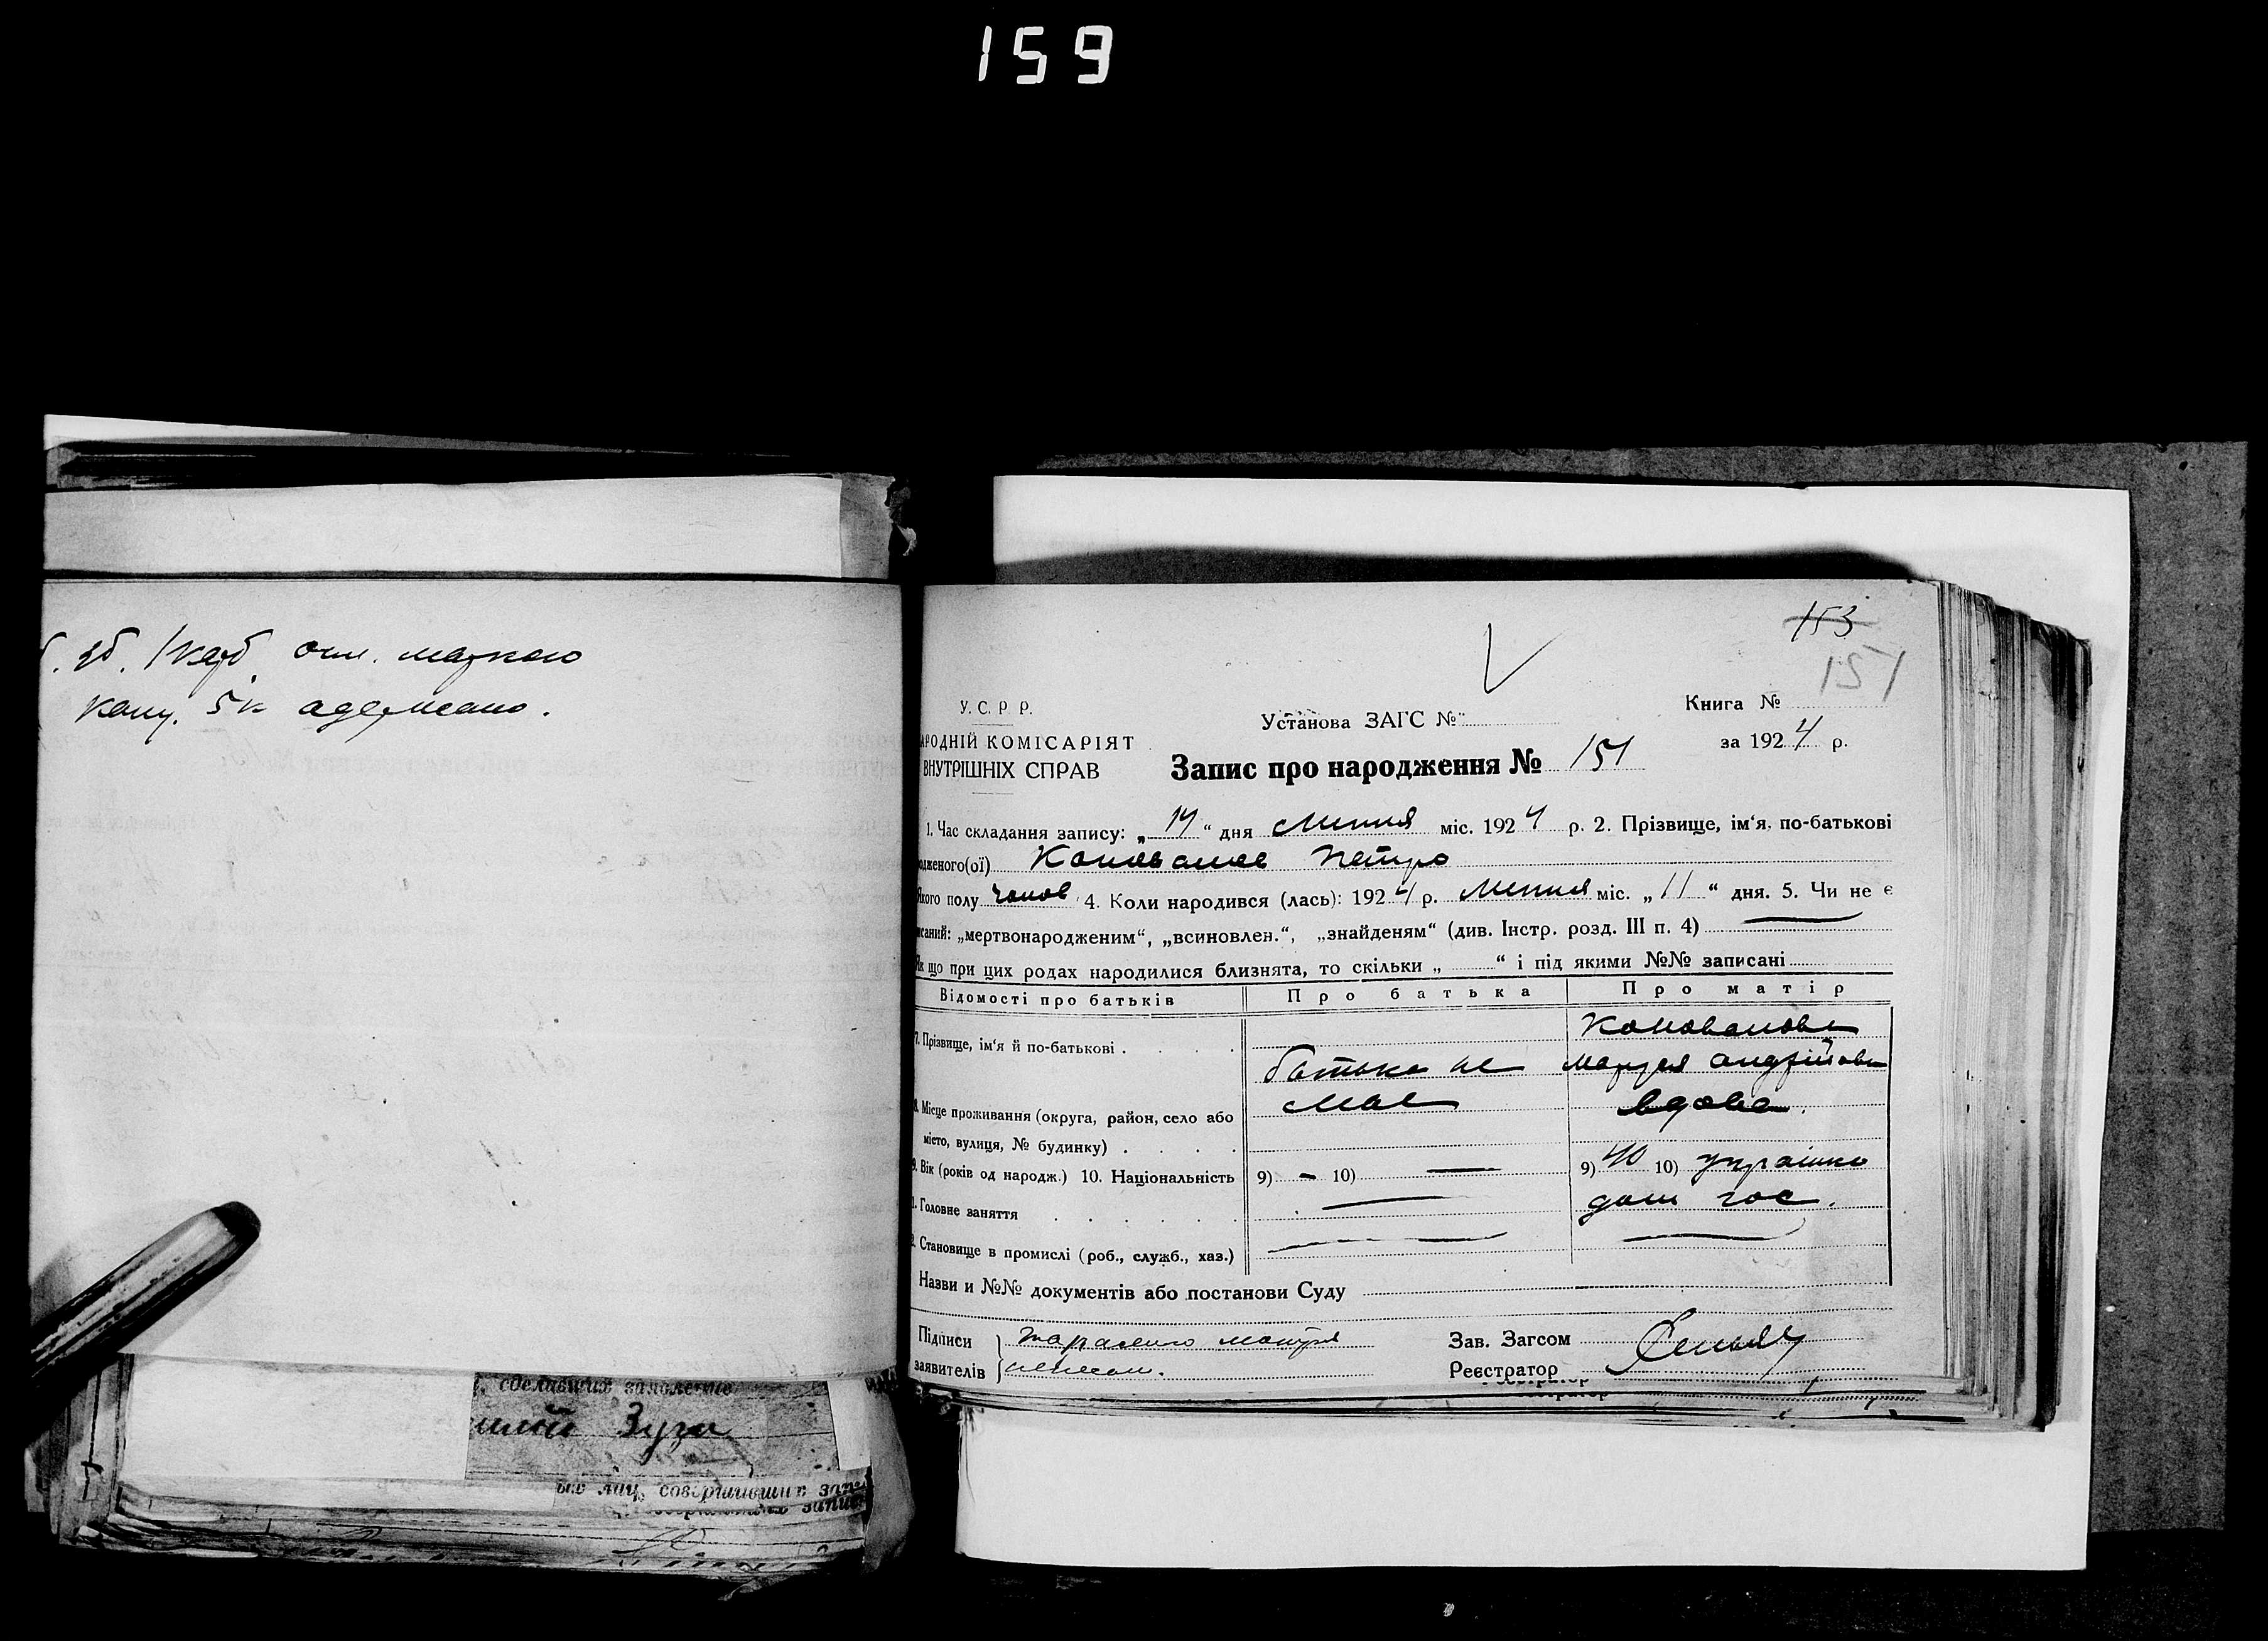 159
зб. 1 карб. опл. маркою
5 к одержано.
153
151
У. С. Р. Р.
Установа ЗАГС №
Книга №
АРОДНІЙ КОМІСАРІЯТ
за 1924 р.
ВНУТРІШНІХ СПРАВ
Запис про народження № 151
1. Час складання запису: „ 14 “ дня Липня міс. 1924 р. 2. Прізвище, ім‘я, по-батькові
одженого(ої) Коновалов Петро
Якого полу чолов 4. Коли народився (лась): 1924 р. Липня міс. „ 11 “ дня. 5. Чи не є
исаний: „мертвонародженим“, „всиновлен.“, „знайденям“ (див. Інстр. розд. III п. 4) —
Як що при цих родах народилися близнята, то скільки „ “ і під якими №№ записані
Відомості про батьків Про батька Про матір
Коновалова
7. Прізвище, ім‘я й по-батькові
батька не Андрійовн
8. Місце проживання (округа, район, село або
має вдова.
місто, вулиця, № будинку)
9. Вік (років од народж.) 10. Національність 9) — 10) — 9) 40 10) українка
1. Головне заняття — дом гос.
2. Становище в промислі (роб., служб., хаз.) — —
Назви и №№ документів або постанови Суду
Підписи
Зав. Загсом
заявителів
неписьм.
Реєстратор
сделавших заявление
Зуга
ых лиц, совершивших запи